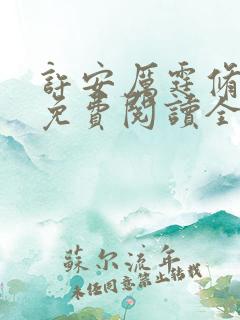 許安厲霆脩
免費閱讀全
蘇尔流年
未經同意禁止轉載